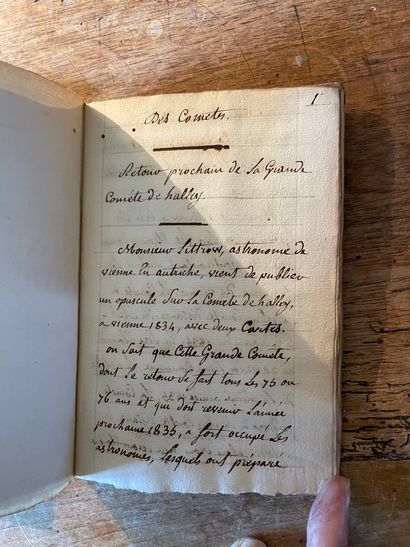 1
Des Cometes.
Retour prochain de la Grande
Cométe de halley.
Monsieur Littrow, astronome de
vienne En autriche, vient de publier
un opuscule Sur la Cométe de halley,
à vienne 1834, avec deux Cartes.
on Sait que Cette Grande Cométe,
dont le retour Se fait tous Les 75 ou
76 ans et qui doit revenir L'année
prochaine 1835, a fort occupé Les
astronomes, Lesquels ont préparé